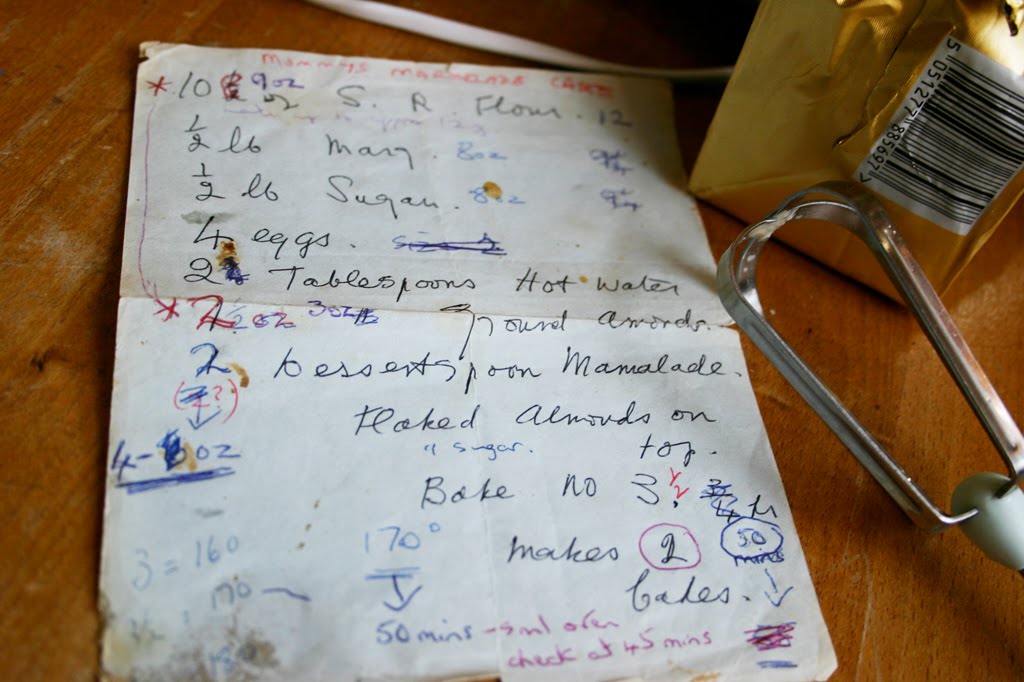 MOMMYS MARMALADE CAKE
* 10 9oz S. R. Flour. 12
1/2 lb Marg. 8oz
1/2 lb Sugar. 8oz
4 eggs.
2 Tablespoons Hot water
* 2 1/2 oz 3oz ground almonds.
2 Dessertspoon Mamalade.
(2?)
Flaked Almonds on
4-6oz " sugar. top.
Bake no 3 1/2? 3/4 hr
170° makes 2 50 mins
3 = 160
170 Cakes.
50 mins - sml oven
check at 45 mins
180
5 051277 885697 >